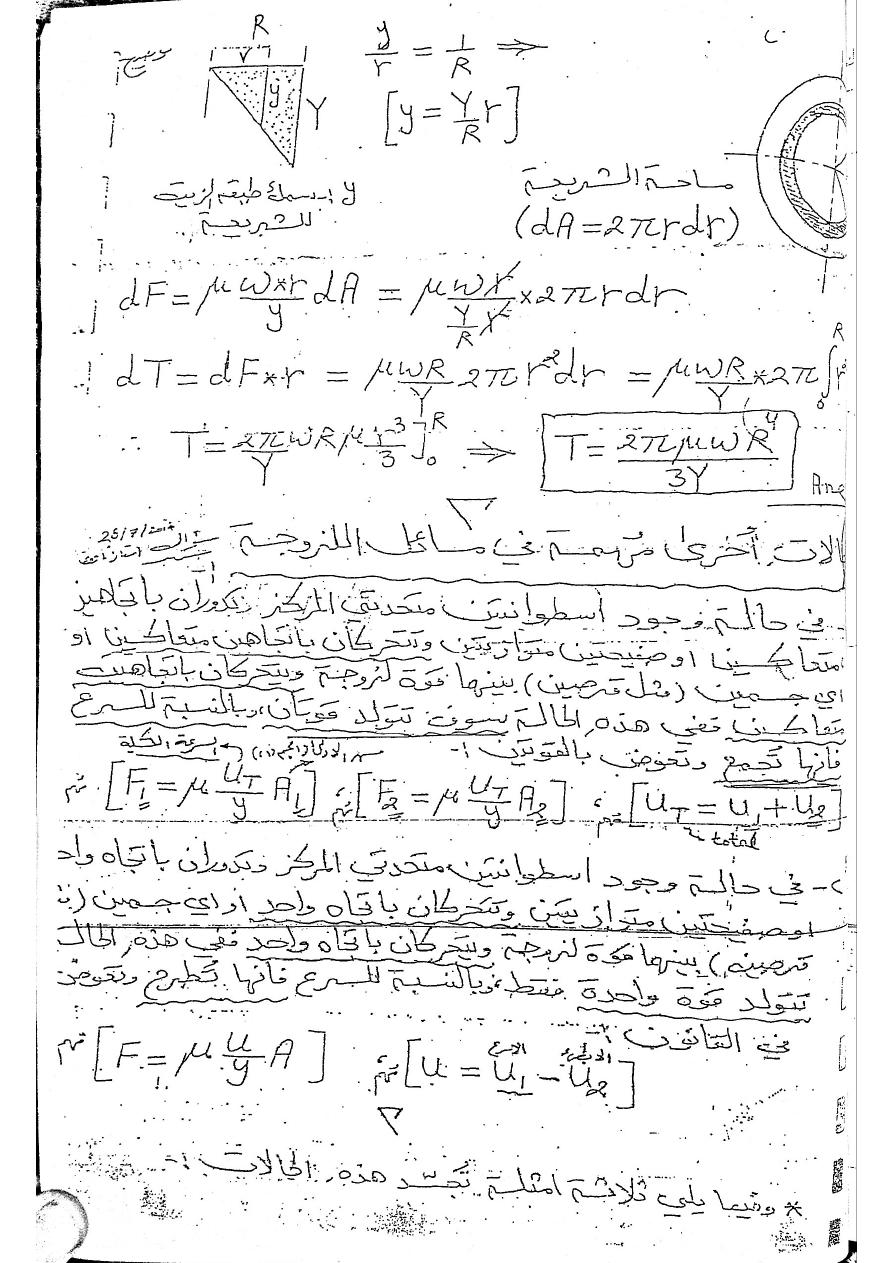 توضيح
R
r
y
Y
y/r = Y/R ⇒
[y = Y/R r]
y :- سمك طبقة الزيت
للشريحة
مساحة الشريحة
(dA = 2πrdr)
dF = μ ω*r/y dA = μ ωr/(Y/R r) * 2πrdr
dT = dF*r = μωR/Y 2πr²dr = μωR/Y * 2π ∫₀ᴿ r²
∴ T = 2πωRμ/Y r³/3 ]₀ᴿ ⇒ T = 2πμωR⁴/3Y
Ans
الات أخرى مهمة في مسائل اللزوجة
في حالة وجود اسطوانتين متحدتي المركز وتدوران باتجاهين
متعاكسين او صفيحتين متوازيتين وتتحركان باتجاهين متعاكسين او
اي جسمين (مثل قرصين) بينهما قوة لزوجة ويتحركان باتجاهين
متعاكسين ففي هذه الحالة سوف تتولد قوتان، وبالنسبة للسرع
فانها تجمع وتعوض بالقوتين :-
السرعة الكلية
[U_T = U₁ + U₂] ثم [F₂ = μ U_T/y A₂] ثم [F₁ = μ U_T/y A₁] ثم
total
٢- في حالة وجود اسطوانتين متحدتي المركز وتدوران باتجاه واح
او صفيحتين متوازيتين وتتحركان باتجاه واحد او اي جسمين (
قرصين) بينهما قوة لزوجة ويتحركان باتجاه واحد ففي هذه الحالة
تتولد قوة واحدة فقط، وبالنسبة للسرع فانها تطرح وتعوض
في القانون :-
[U = U₁ - U₂] ثم [F = μ U/y A] ثم
* وفيما يلي ثلاثة امثلة تجسد هذه الحالات :-